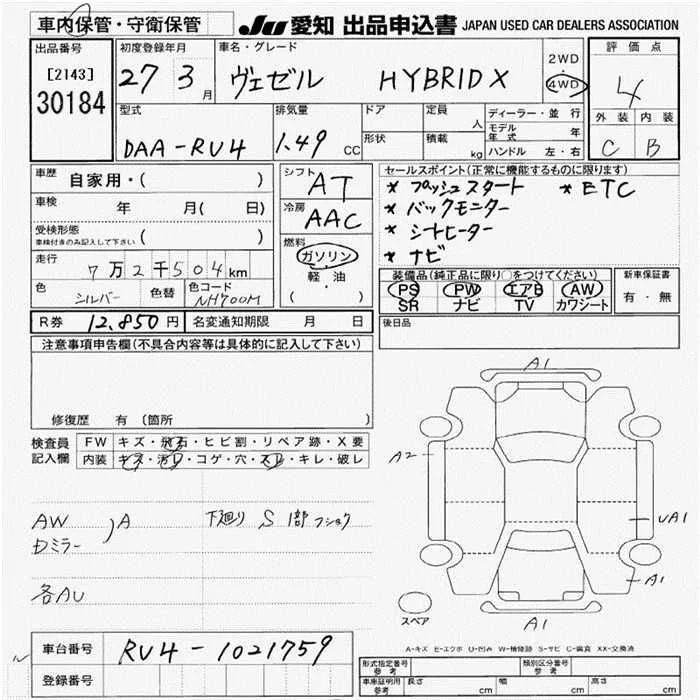 車内保管・守衛保管
JU 愛知 出品申込書 JAPAN USED CAR DEALERS ASSOCIATION
出品番号
[2143]
30184
初度登録年月
27 3 月
車名・グレード
ヴェゼル HYBRID X
2WD
4WD
評価点
4
外装 内装
C B
型式
DAA-RU4
排気量
1.49 CC
ドア
形状
定員 人
積載 kg
ディーラー・並行
モデル年式 年
ハンドル 左・右
車歴 自家用・( )
車検 年 月( 日)
受検形態
車検付きのみ記入して下さい ( )
走行 7万2千504km
色 シルバー 色替 色コード NH700M
シフト AT
冷房 AAC
燃料
ガソリン
軽・油
( )
セールスポイント(正常に機能するものに限ります)
* プッシュスタート * ETC
* バックモニター
* シートヒーター
* ナビ
装備品(純正品に限り○をつけてください)
PS PW エアB AW
SR ナビ TV カワシート
新車保証書
有・無
R券 12,850円 名変通知期限 月 日
後日品
注意事項申告欄(不具合内容等は具体的に記入して下さい)
修復歴 有 (箇所 )
検査員記入欄
FW キズ・飛石・ヒビ割・リペア跡・X要
内装 キズ・汚れ・コゲ・穴・スレ・キレ・破レ
AW
Dミラー
)A
各AU
下廻り S 1部 フショク
A1
A2
UA1
A1
A1
スペア
A-キズ E-エクボ U-凹み W-補修跡 S-サビ C-腐食 XX-交換済
車台番号 RU4-1021759
登録番号
形式指定番号 参考
類別区分番号 参考
車庫証明用 参考 長さ cm 幅 cm 高さ cm